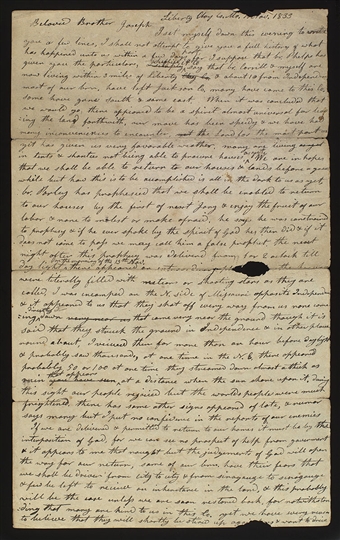 Liberty Clay Co. Mo. Nov. 1833
Beloved Brother Joseph
I set myself down this evening to write
you a few lines, I shall not attempt to give you a full history of what
has happened unto us within a few days I suppose that br. Phelps has
given you the particulars, br. Corrill & myself are
now living within 3 miles of Liberty & about 10 from Independence
most of our brn, have left Jackson Co, many have come to this Co
some have gone South & some east. When it was concluded that
we would go, there appeared to be a spirit almost universal for
ing the land forthwith, our move has been speedy & we have had
many inconveniences to encounter the Lord for the most part
yet has given us very favorable weather, many are living
in tents & shanties not being able to procure houses. We are in hopes
that we shall be able to return to our houses & lands before a great
while but how this is to be accomplished is all in the dark to us as yet
br. Parley has prophecied that we shall be enabled to return
to our houses by the first of next Jany & enjoy the fruit of our
labor & none to molest or make afraid, he says he was constrained
to prophecy & if he ever spoke by the spirit of God he then did & if it
does not come to pass we may call him a false prophet. The next
night after this prophecy was delivered from, for 2 oclock till
day light there appeared an extraordinary the
were literally filled with meteors or shooting stars as they are
called I was encamped on the N. side of Missouri opposite Independence
& it appeared to us that they shot off every way from us
some very near the ground though it is
said that they struck the ground in Independence & in other places
round about, I viewed them for more than an hour before daylight
& probably saw thousands, at one time in the N.E. there appeared
probably 50 or 100 at one time they streamed down almost as thick as
at a distance when the sun shone upon it, during
this sight our people rejoiced but the worlds people were much
frightened there has some other signs appeared of late, & rumor
says many but I put no confidence in the reports of our enemies
If we are delivered & permitted to return to our homes it must be by the
interposition of God, for we can see no prospect of help from government
& it appears to me that nought but the judgements of God will open
the way for our return, some of our brn, have their fears that
we shall be driven from city to city & from sinagouge to sinagouge
& few be left to receive an inheritance in the land, & this probably
will be the case unless we are soon restored back, for notwithstan
ding that many are kind to us in this Co, yet we have every reason
to believe that they will shortly be stired up against us & want to drive